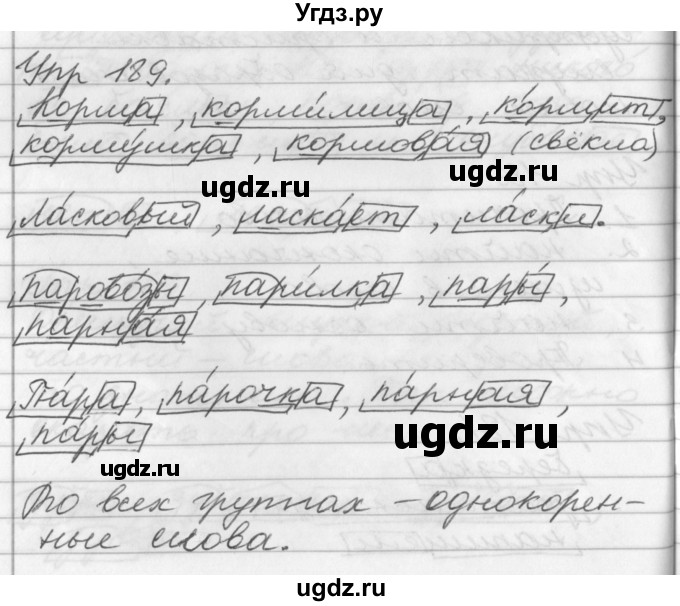 Угдз.ру
Упр 189.
Корма, корми́лица, ко́рмит,
корму́шка, кормова́я (свёкла)
ugdz.ru
ugdz.ru
Ла́сковый, ласка́ет, ла́ски.
Парово́зы, пари́лка, пары́,
парна́я
Па́ра, па́рочка, па́рная,
па́ры
ugdz.ru
ugdz.ru
Во всех группах – однокорен-
ные слова.
ugdz.ru